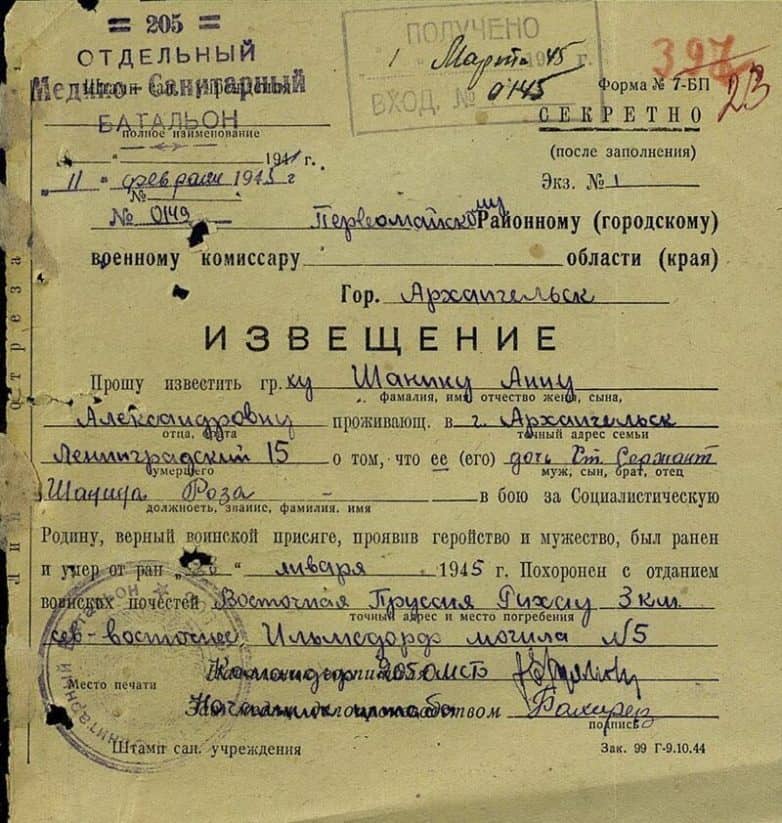 = 205 =
ОТДЕЛЬНЫЙ
Медико-Санитарный
БАТАЛЬОН
полное наименование
ПОЛУЧЕНО
1 Марта 1945 г.
ВХОД. № 0145
397
23
Форма № 7-БП
СЕКРЕТНО
(после заполнения)
Экз. № 1
" " 194 г.
" 11 " февраля 1945 г
№
№ 0149
Первомайскому Районному (городскому)
военному комиссару области (края)
Гор. Архангельск
ИЗВЕЩЕНИЕ
Прошу известить гр.ку Шанину Анну
фамилия, имя отчество жены, сына,
Александровну проживающ. в г. Архангельск
отца, брата точный адрес семьи
Ленинградский 15 о том, что ее (его) дочь Ст Сержант
умершего муж, сын, брат, отец
Шанина Роза — в бою за Социалистическую
должность, звание, фамилия, имя
Родину, верный воинской присяге, проявив геройство и мужество, был ранен
и умер от ран " 28 " января 1945 г. Похоронен с отданием
воинских почестей Восточная Пруссия Рихау 3 км.
точный адрес и место погребения
сев-восточнее Ильмсдорф могила №5
Командир 205 ОМСБ
Место печати
Начальник штаба
делопроизводством
подпись
Штамп сан. учреждения
Зак. 99 Г-9.10.44
Линия отреза